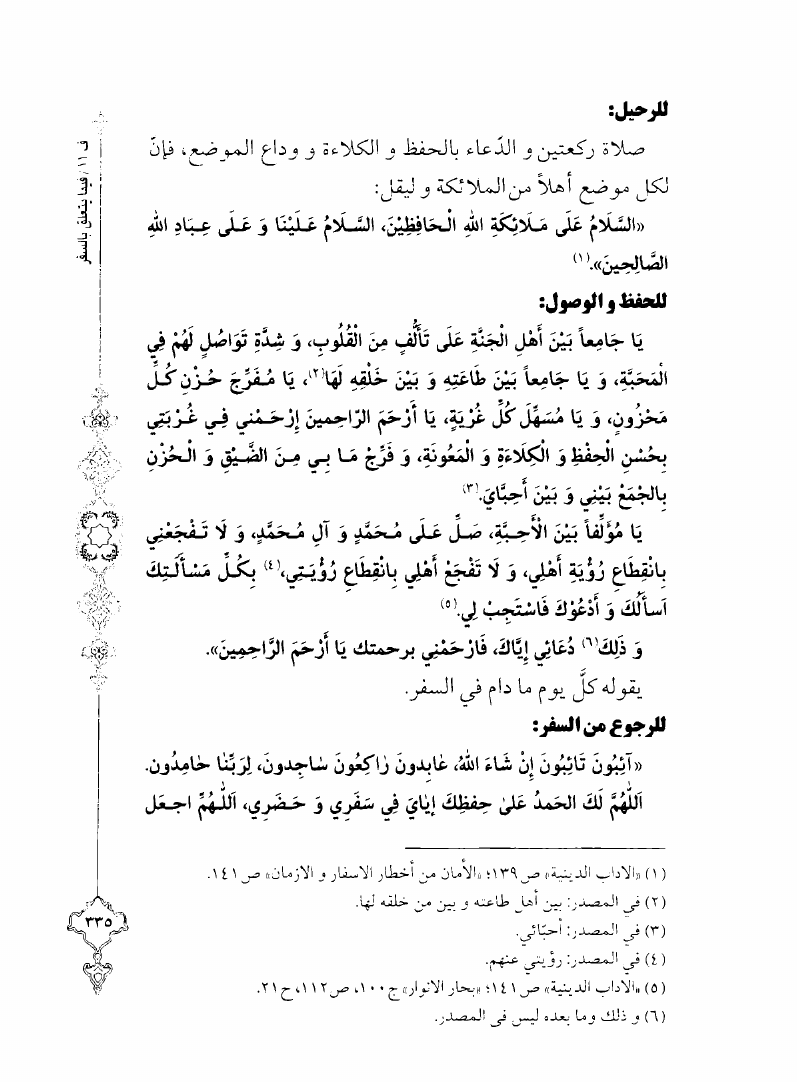 للرحيل:
صلاة ركعتين و الدّعاء بالحفظ و الكلاءة و وداع الموضع، فإنّ
لكل موضع أهلاً من الملائكة و ليقل:
«السَّلَامُ عَلَى مَلَائِكَةِ اللهِ الْحَافِظِيْنَ، السَّلَامُ عَلَيْنَا وَ عَلَى عِبَادِ اللهِ
الصَّالِحِينَ».(١)
للحفظ و الوصول:
يَا جَامِعاً بَيْنَ أَهْلِ الْجَنَّةِ عَلَى تَأَلُّفٍ مِنَ الْقُلُوبِ، وَ شِدَّةِ تَوَاصُلٍ لَهُمْ فِي
الْمَحَبَّةِ، وَ يَا جَامِعاً بَيْنَ طَاعَتِهِ وَ بَيْنَ خَلْقِهِ لَهَا(٢)، يَا مُفَرِّجَ حُزْنِ كُلِّ
مَحْزُونٍ، وَ يَا مُسَهِّلَ كُلِّ غُرْبَةٍ، يَا أَرْحَمَ الرّاحِمينَ إِرْحَمْني فِي غُرْبَتِي
بِحُسْنِ الْحِفْظِ وَ الْكِلَاءَةِ وَ الْمَعُونَةِ، وَ فَرِّجْ مَا بِي مِنَ الضَّيْقِ وَ الْحُزْنِ
بِالجَمْعِ بَيْنِي وَ بَيْنَ أَحِبَّايَ.(٣)
يَا مُؤَلِّفاً بَيْنَ الْأَحِبَّةِ، صَلِّ عَلَى مُحَمَّدٍ وَ آلِ مُحَمَّدٍ، وَ لَا تَفْجَعْنِي
بِانْقِطَاعِ رُؤْيَةِ أَهْلِي، وَ لَا تَفْجَعْ أَهْلِي بِانْقِطَاعِ رُؤْيَتِي،(٤) بِكُلِّ مَسْأَلَتِكَ
اَسأَلُكَ وَ أَدْعُوْكَ فَاسْتَجِبْ لِي.(٥)
وَ ذَلِكَ(٦) دُعَائِي إِيَّاكَ، فَارْحَمْنِي برحمتك يَا أَرْحَمَ الرَّاحِمِينَ».
يقوله كلّ يوم ما دام في السفر.
للرجوع من السفر:
«آئِبُونَ تَائِبُونَ إِنْ شَاءَ اللهُ، عَابِدونَ رَاكِعُونَ سَاجِدونَ، لِرَبِّنَا حَامِدُون.
اَللّهُمَّ لَكَ الحَمدُ عَلىٰ حِفظِكَ إيّايَ فِي سَفَرِي وَ حَضَرِي، اَللّهُمَّ اجعَل
(١) «الاداب الدينية» ص ١٣٩؛ «الأمان من أخطار الاسفار و الازمان» ص ١٤١.
(٢) في المصدر: بين أهل طاعته و بين من خلقه لها.
(٣) في المصدر: أحبّائي.
(٤) في المصدر: رؤيتي عنهم.
(٥) «الاداب الدينية» ص ١٤١؛ «بحار الانوار» ج ١٠٠، ص ١١٢، ح ٢١.
(٦) و ذلك وما بعده ليس في المصدر.
ف ١١ / فيما يتعلق بالسفر
٣٣٥